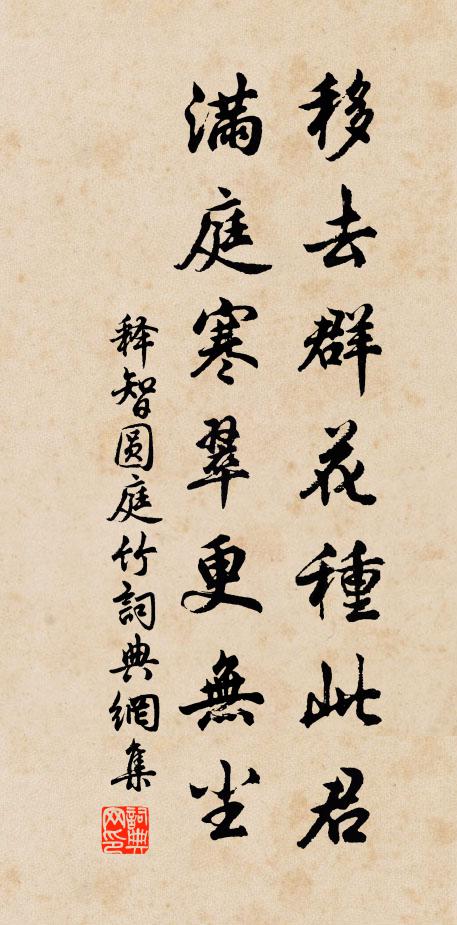 移去群花種此君
満庭寒翠更無尘
释智圆庭竹詞典網集
詞典网印